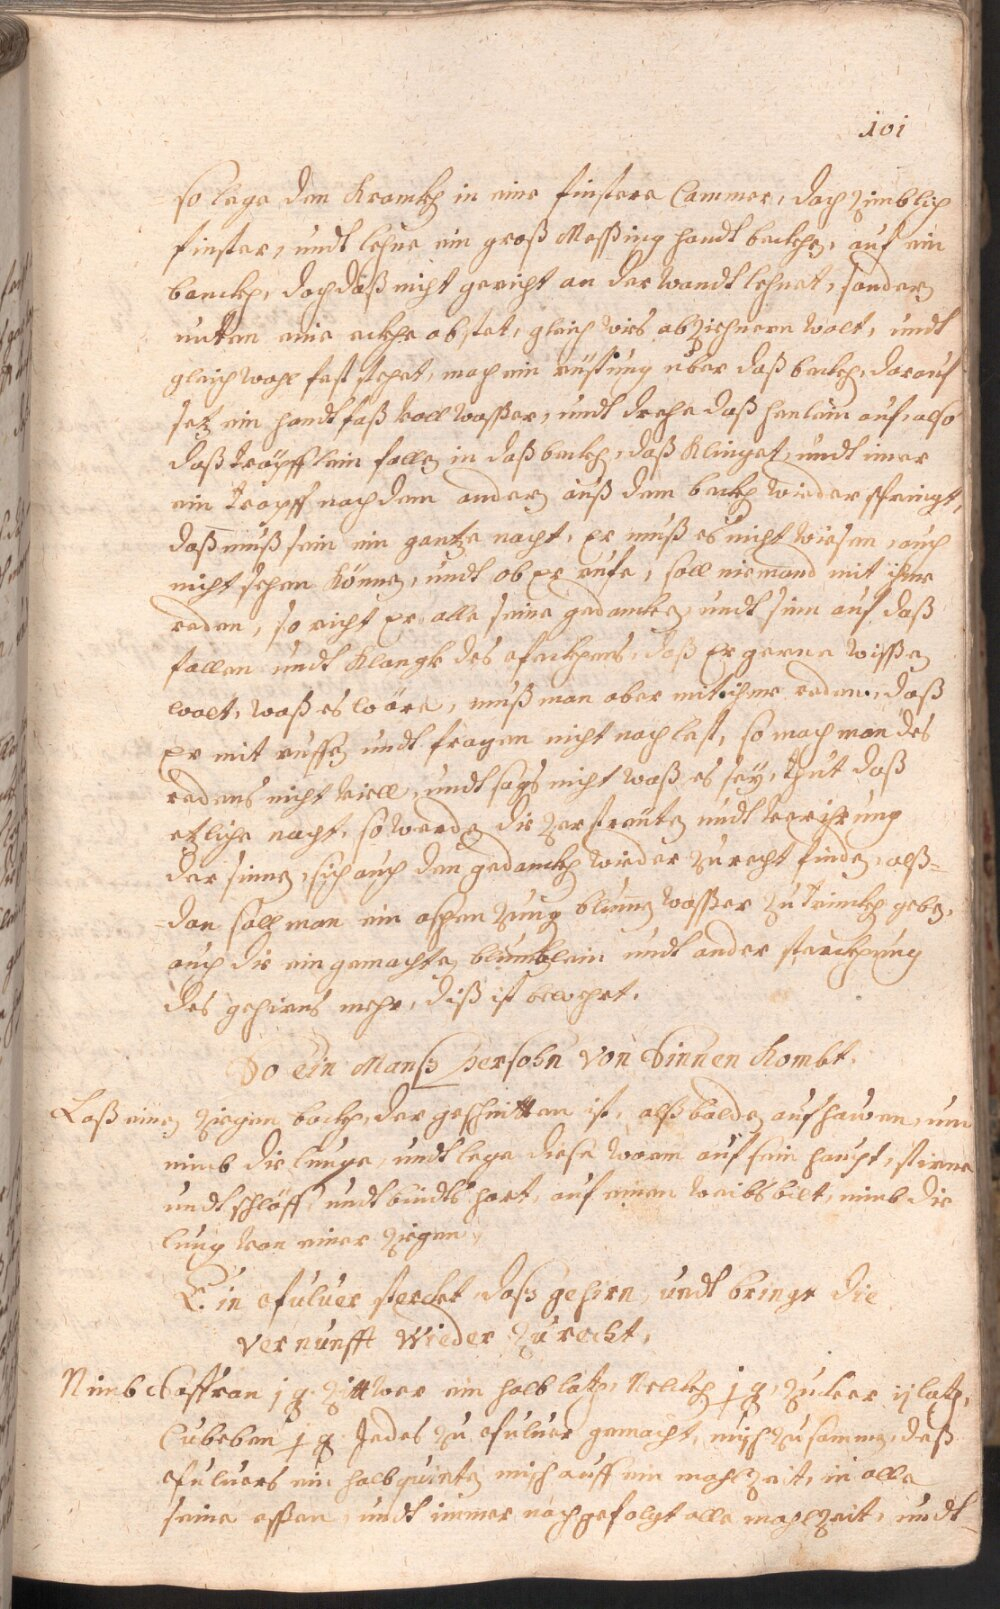 101
so lege den Kranckh in eine finstere Cammer, doch zimblich
finster, undt lehne ein groß Messing handt beckhe, auf ein
banckh, doch daß nicht gericht an der wandt lehnet, sondern
unten eine eckhe abstet, gleich wies abziehnern wolt, undt
gleich wohl fest stehet, mach ein rüstung uber daß beckh, darauf
setz ein handt faß voll wasser, undt drehe daß henlein auf, also
daß tröpfflein fallen in daß beckh, daß Klinget, undt imer
ein tropff nach dem andern auß dem beckh wieder springt,
daß muß sein ein gantze nacht, Er muß es nicht wissen, auch
nicht sehen Können, undt ob Er rufe, soll niemand mit ihme
reden, so richt Er alle seine gedancken undt sinn auf daß
fallen undt Klangk des beckhens, daß Er gerne wissen
wolt, waß es wöre, muß man aber mit ihme reden, daß
Er mit ruffen undt fragen nicht nach lest, so mach man des
redens nicht viell, undt sags nicht waß es sey, thut daß
etzliche nacht, so werden die zerstreute undt verihrung
der sinne, sich auch den gedanckh wieder zurecht finden, alß-
dan soll man ein aschen zung blumen wasser zu trinckh geben,
auch die ein gemachten blumblein undt ander sterckhung
des gehirns mehr, diß ist bewehrt.
So Ein Manß Persohn von Sinnen Kombt.
Laß einen ziegen bockh, der geschnitten ist, alß balden aufhawen, und
nimb die lunge, undt lege diese warm auf sein haupt, stirne
undt schlöff undt bindts hart, auf einen weibsbilt, nimb die
lung von einer ziegen
Ein Pulver sterckt daß gehirn, undt bringt die
vernunfft wieder zu recht.
Nimb Saffran j q. Zittwer ein halb loth, Nelckh j q, zucker ij loth,
Cubeben j q Jedes zu Pulver gemacht, misch zusammen, deß
Pulvers ein halb quinten misch auff ein mahlzeit, in alle
seine essen, undt immer nachgefolgt alle mahlzeit, undt